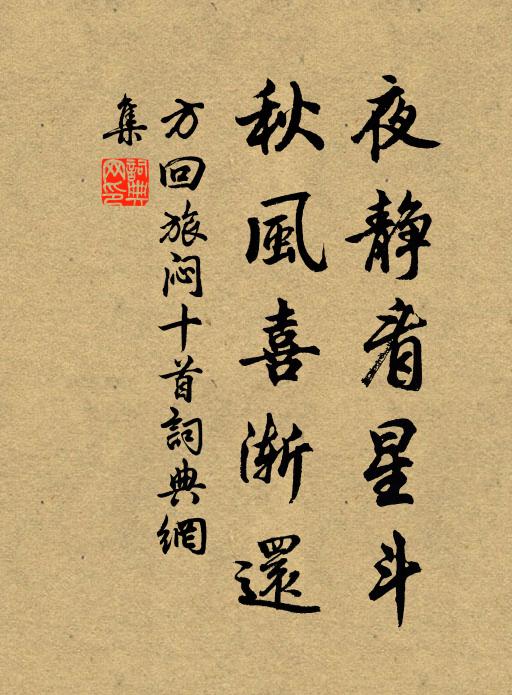 夜静看星斗
秋風喜漸還
方回旅闷十首詞典網
集
詞典网印